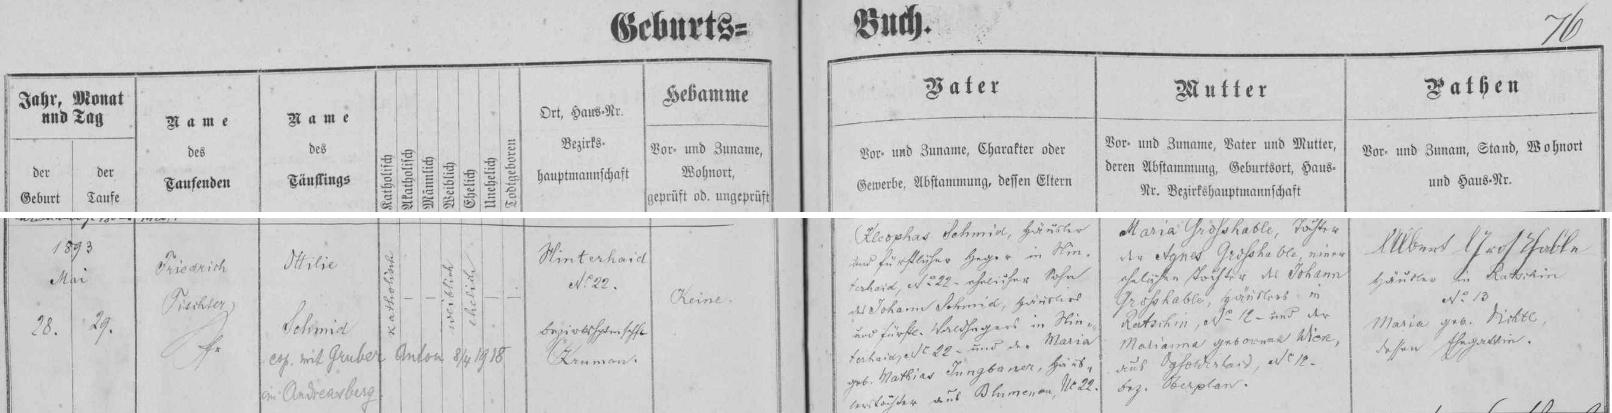 Geburts=
Buch.
76
Jahr, Monat
und Tag
der
Geburt
der
Taufe
Name
des
Taufenden
Name
des
Täuflings
Katholisch
Akatholisch
Männlich
Weiblich
Ehelich
Unehelich
Todtgeboren
Ort, Haus-Nr.
Bezirks-
hauptmannschaft
Hebamme
Vor- und Zuname,
Wohnort,
geprüft od. ungeprüft
Vater
Vor- und Zuname, Charakter oder
Gewerbe, Abstammung, dessen Eltern
Mutter
Vor- und Zuname, Vater und Mutter,
deren Abstammung, Geburtsort, Haus-
Nr. Bezirkshauptmannschaft
Pathen
Vor- und Zunam, Stand, Wohnort
und Haus-Nr.
1893
Mai
28. 29.
Friedrich
Tischler
Ottilie
Schmid
cop. mit Gruber Anton 8/4 1918
in Andreasberg.
katholisch
–
–
weiblich
ehelich
–
–
Hinterhaid
No 22.
Bezirkshptmschft
Krumau.
Keine.
Kleophas Schmid, Häusler
und fürstlicher Heger in Hin-
terhaid, No 22 - ehelicher Sohn
des Johann Schmid, Häuslers
und fürstl. Waldhegers in Hin-
terhaid, No 22 - und der Maria
geb. Mathias Jungbauer, Häus-
lerstochter aus Blumenau, No 22.
Maria Großhable, Tochter
der Agnes Großhable, einer
ehelichen Tochter des Johann
Großhable, Häuslers in
Ratschin, No 12 - und der
Marianna geborenen
aus Ogfolderhaid, No 12.
bez. Oberplan.
Albert Großhable
Häusler in Ratschin
No 13
Maria geb. Dichtl,
dessen Ehegattin.